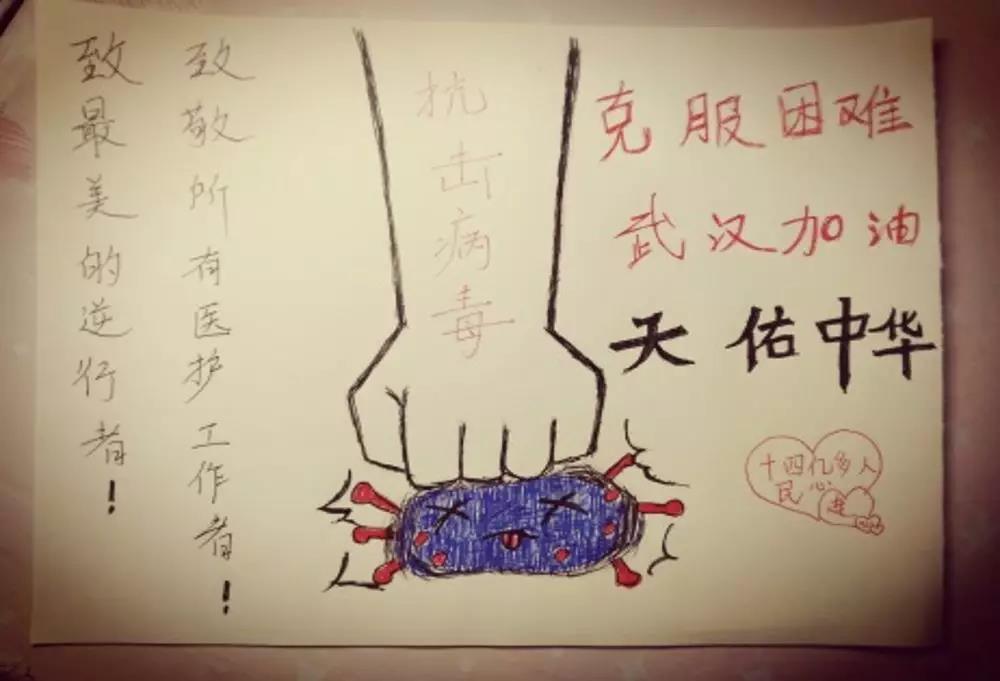 致最美的逆行者！
致敬所有医护工作者！
抗击病毒
克服困难
武汉加油
天佑中华
十四亿多人
民心